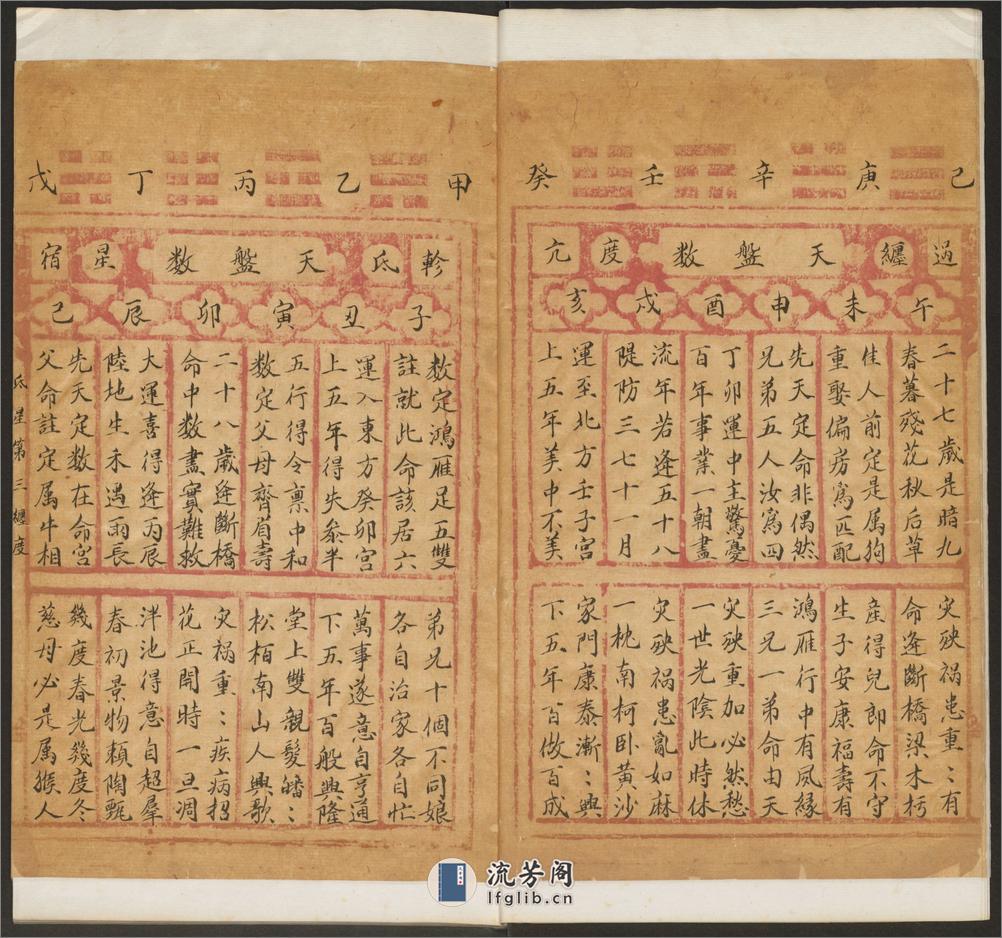 己庚辛壬癸
過纏天盤数度亢
午未申酉戌亥
二十七歲是暗九
春暮殘花秋后草
灾殃祸患重:有
命逢斷橋梁木朽
佳人前定是属狗
重娶偏房爲匹配
産得兒郎命不守
生子安康福壽有
先天定命非偶然
兄弟五人汝爲四
鴻雁行中有夙緣
三兄一弟命由天
丁卯運中主驚憂
百年事業一朝盡
灾殃重加必然愁
一世光陰此時休
流年若逢五十八
隄防三七十一月
灾殃祸患亂如麻
一枕南柯卧黄沙
運至北方壬子宮
上五年美中不美
家門康泰漸:興
下五年百做百成
甲乙丙丁戊
軫氐天盤数星宿
子丑寅卯辰己
数定鴻雁足五雙
註就此命該居六
弟兄十個不同娘
各自治家各自忙
運入東方癸卯宮
上五年得失叅半
萬事遂意自亨通
下五年百般興隆
五行得令禀中和
数定父母齊眉壽
堂上雙親髪皤:
松栢南山人興歌
二十八歲逢斷橋
命中数盡實難救
灾祸重:疾病招
花正開時一旦凋
大運喜得逢丙辰
陸地生禾遇雨長
泮池得意自超羣
春初景物頼陶甄
先天定数在命宮
父命註定属牛相
幾度春光幾度冬
慈母必是属猴人
氐星第三纏度
流芳阁
lfglib.cn